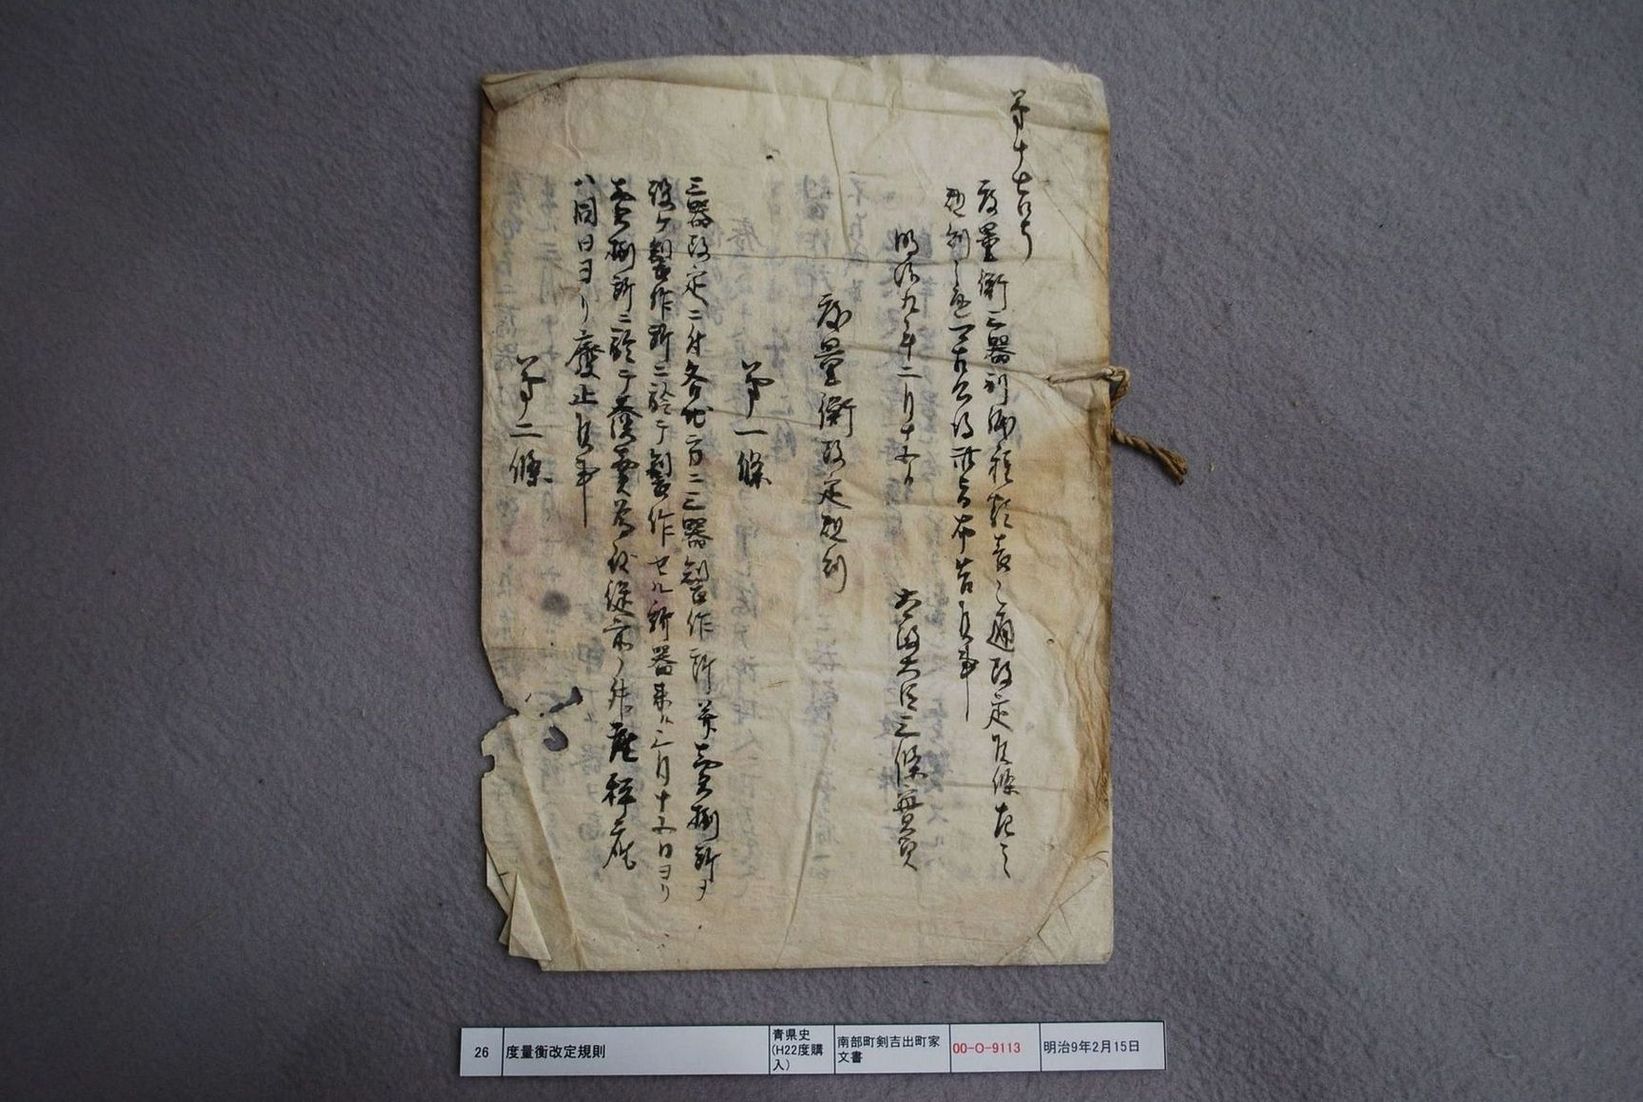 第十七号
度量衡三器制 種類表之通改定候條右之
規則 布告候事
明治九年二月十五日 太政大臣三條實美
度量衡改定規則
第一條
三器改定ニ付各地方ニ三器製作所并賣捌所ヲ
設ケ製作所ニ於テ製作セル新器来ル三月十五日ヨリ
賣捌所ニ於テ發賣為致従前ノ 座秤座
ハ同日ヨリ廢止候事
第二條
26
度量衡改定規則
青県史
(H22度購
入)
南部町剣吉出町家
文書
00-O-9113
明治9年2月15日